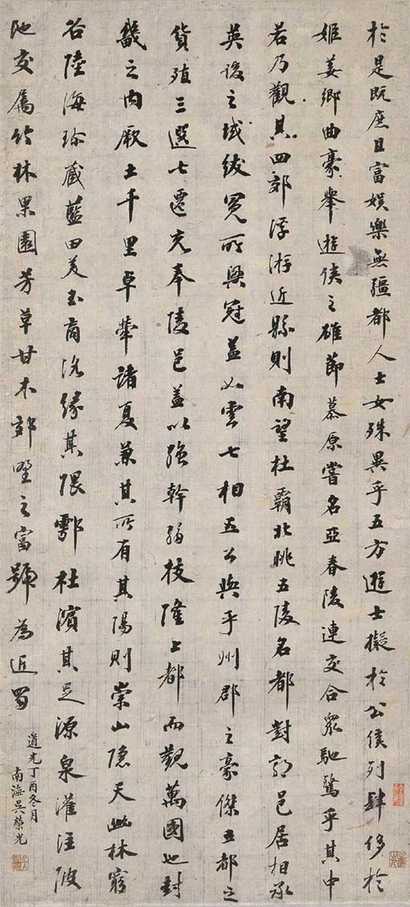 於是既庶且富娛樂無疆都人士女殊異乎五方遊士擬於公侯列肆侈於
姬姜鄉曲豪舉遊俠之雄節慕原嘗名亞春陵連交合眾馳騖乎其中
若乃觀其四郊浮游近縣則南望杜霸北眺五陵名都對郭邑居相承
英俊之域紱冕所興冠蓋如雲七相五公與乎州郡之豪傑五都之
貨殖三選七遷充奉陵邑蓋以強幹弱枝隆上都而觀萬國也封
畿之內厥土千里卓犖諸夏兼其所有其陽則崇山隱天幽林窮
谷陸海珍藏藍田美玉商洛緣其隈鄠杜濱其足源泉灌注陂
池交屬竹林果園芳草甘木郊野之富號為近蜀
道光丁酉冬月
南海吳榮光